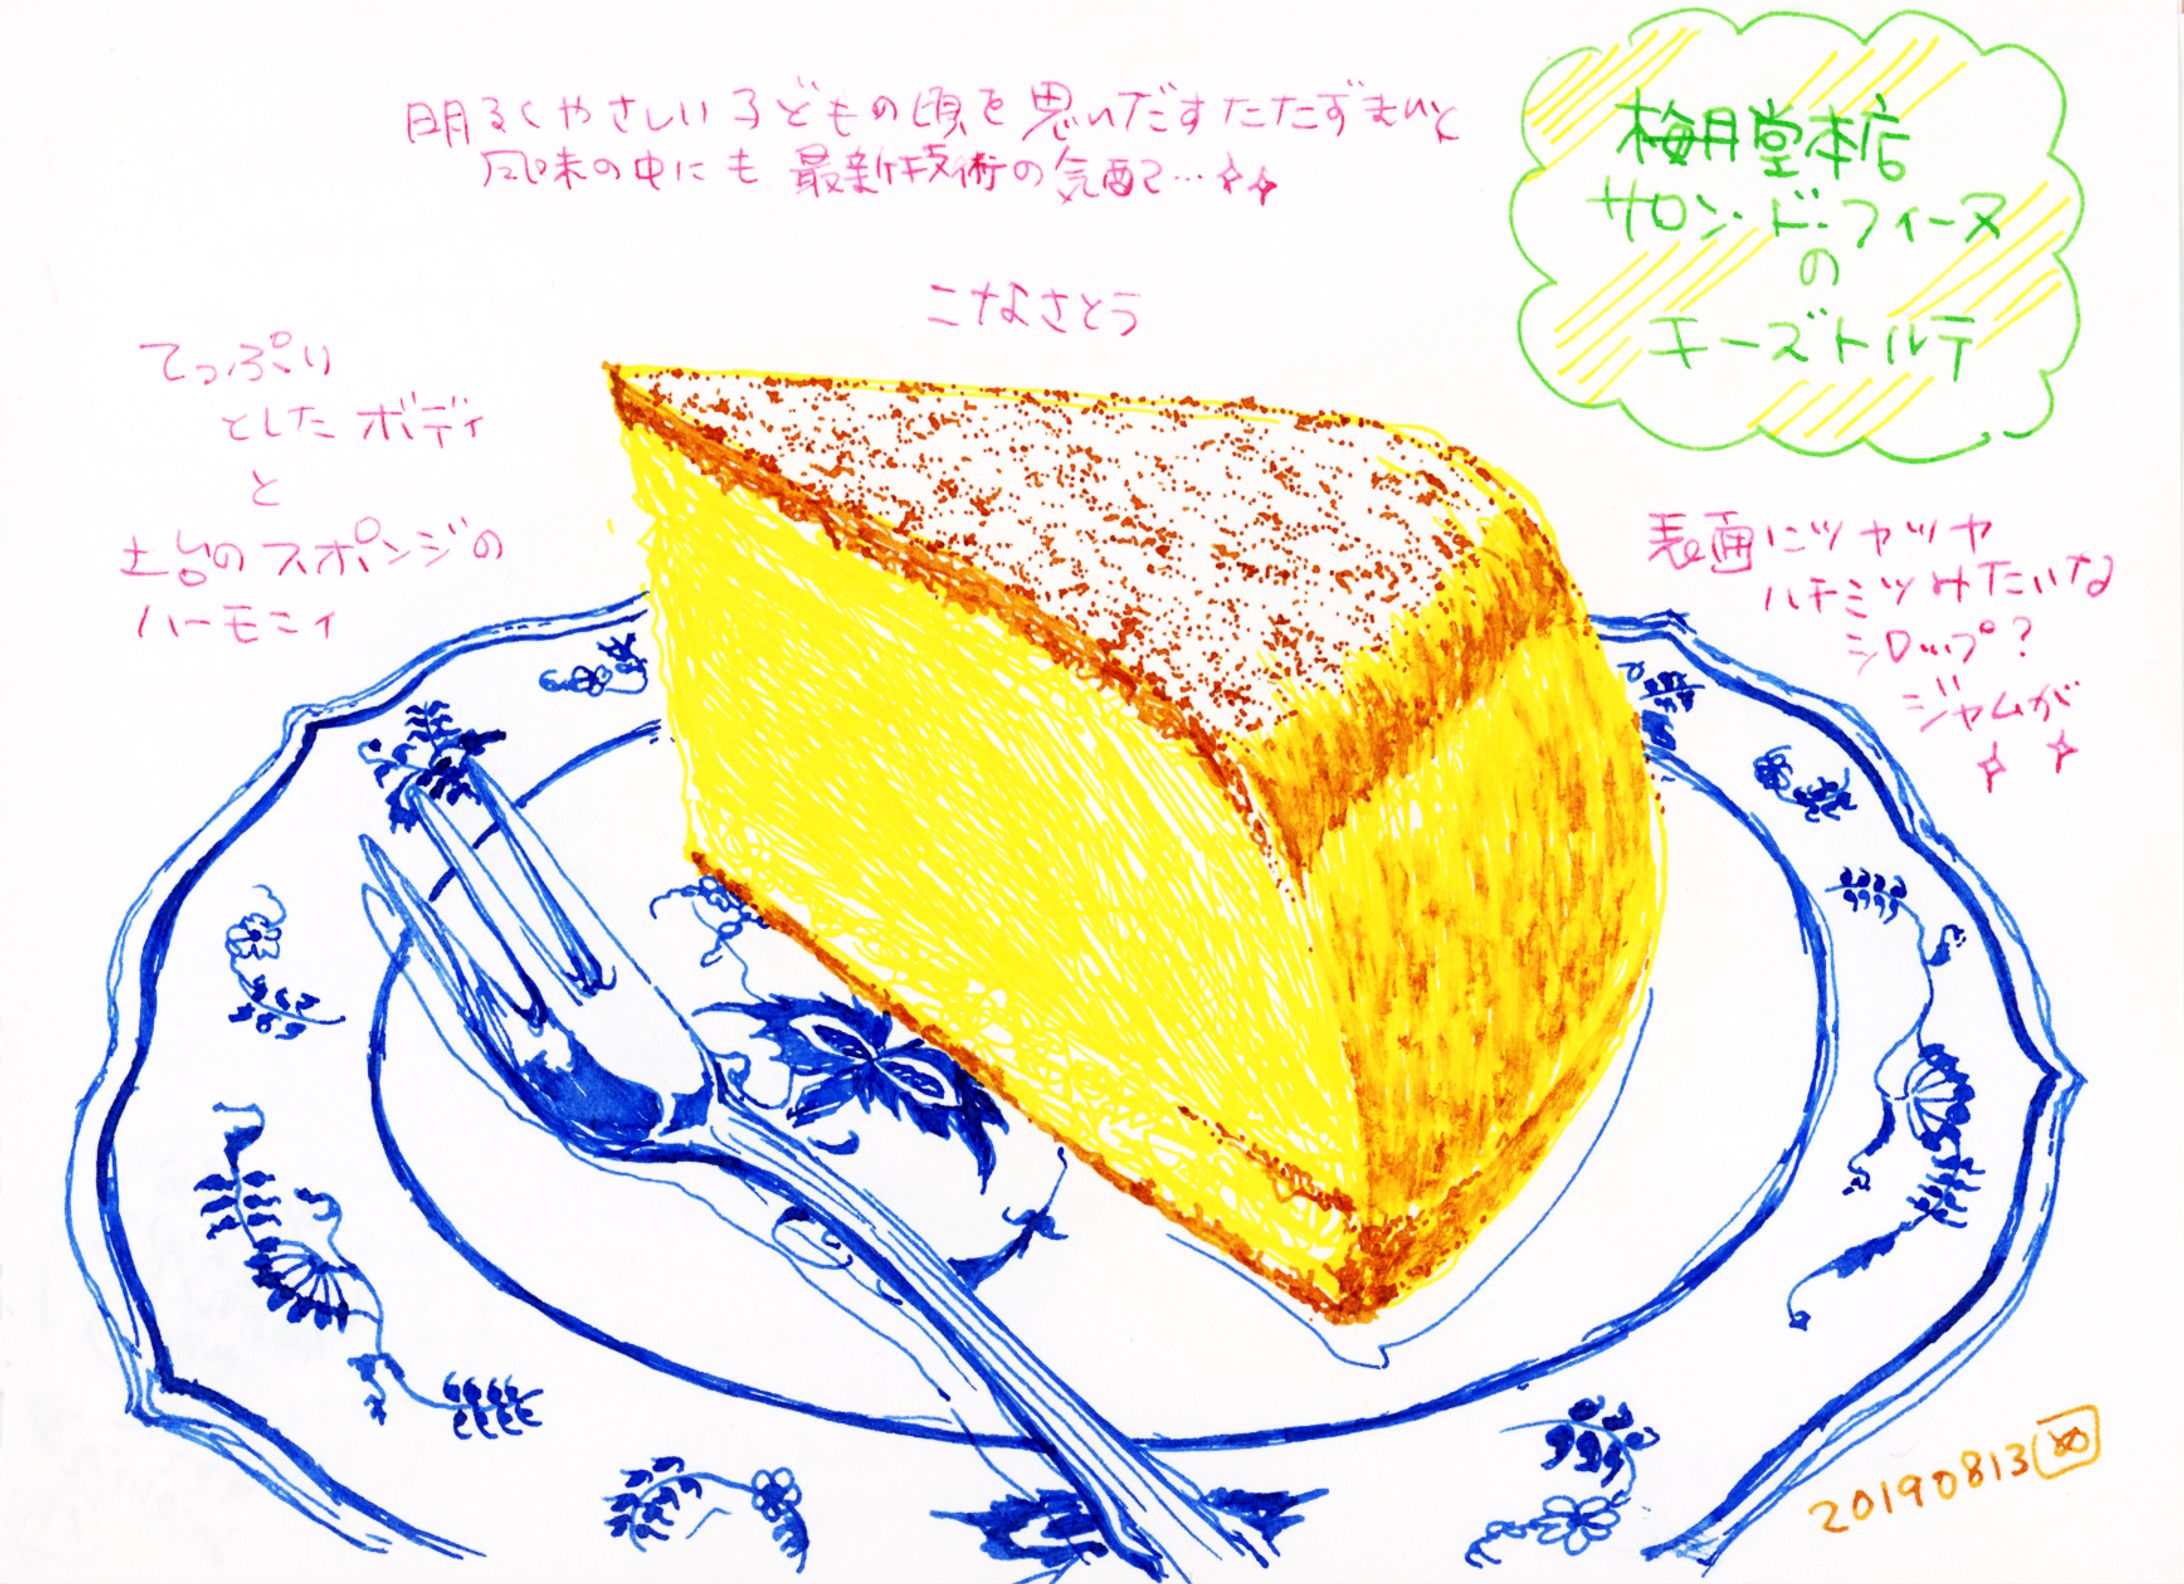 明るくやさしい子どもの頃を思いだすたたずまいと
風味の中にも最新技術の気配…
梅月堂本店
サロン・ド・フィーヌ
の
チーズトルテ
こなさとう
てっぷり
としたボディ
と
土台のスポンジの
ハーモニィ
表面にツヤツヤ
ハチミツみたいな
シロップ?
ジャムが
20190813